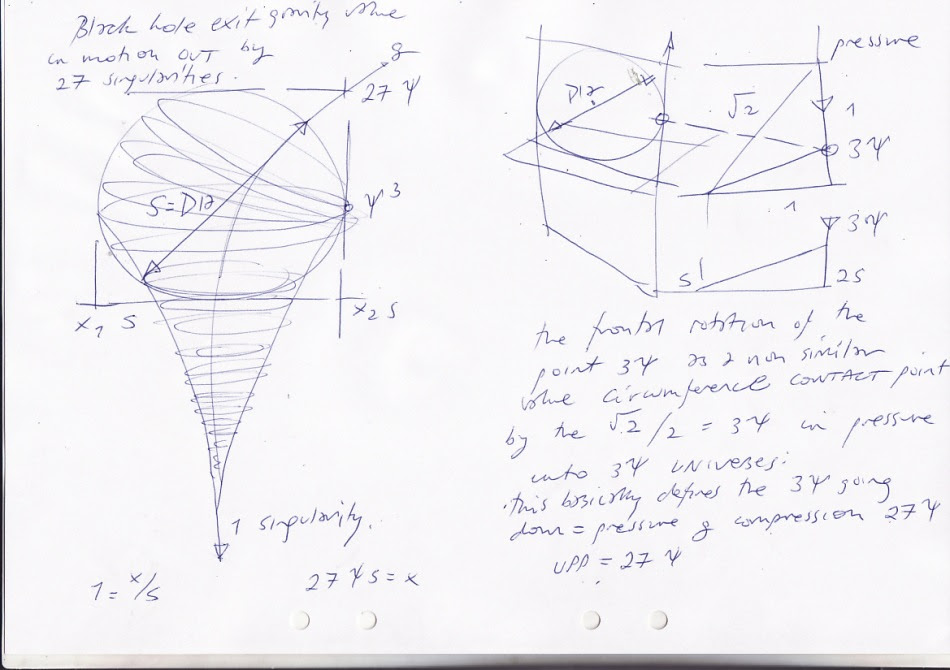 Black hole exit gravity value
in motion OUT by
27 singularities.
g
27 Ψ
S = D12
Ψ 3
x1 S
x2 S
1 singularity.
1 = x/s
27 Ψ S = x
pressure
D12
√2
1
3Ψ
1
3Ψ
S1
2S
the frontal rotation of the
point 3Ψ as a non similar
value circumference CONTACT point
by the √2/2 = 3Ψ in pressure
unto 3Ψ UNIVERSES:
this basically defines the 3Ψ going
down = pressure g compression 27Ψ
UPP = 27 Ψ